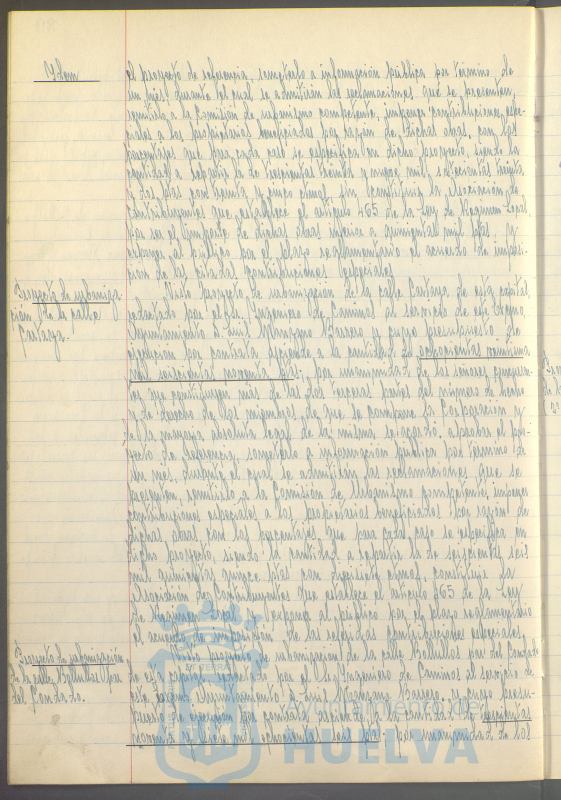 Idem
el proyecto de referencia, someterlo a información pública por término de
un mes, durante el cual se admitirán las reclamaciones que se presenten,
remitirlo a la Comisión de Urbanismo competente, imponer contribuciones espe-
ciales a los propietarios beneficiados por razón de dichas obras, con los
porcentajes que para cada caso se especifica en dicho proyecto, siendo la
cantidad a repartir la de trescientas treinta y nueve mil setecientas treinta
y dos ptas con treinta y cinco ctmos, sin constituir la Asociación de
Contribuyentes que establece el artículo 465 de la Ley de Régimen Local,
por ser el importe de dichas obras inferior a quinientas mil ptas, y
exponer al público por el plazo reglamentario el acuerdo de imposi-
ción de las citadas contribuciones especiales.
Proyecto de urbaniza-
ción de la calle
Cartaya.
Visto proyecto de urbanización de la calle Cartaya de esta capital,
redactado por el Sr. Ingeniero de Caminos al servicio de este Excmo.
Ayuntamiento D. Luis Manzano Barrero y cuyo presupuesto de
ejecución por contrata asciende a la cantidad de ochocientas
mil seiscientas noventa ptas, por unanimidad de los señores asisten-
tes que constituyen más de las dos terceras partes del número de hecho
y de derecho de los miembros de que se compone la Corporación y
de la mayoría absoluta legal de la misma, se acordó: aprobar el pro-
yecto de referencia, someterlo a información pública por término de
un mes, durante el cual se admitirán las reclamaciones que se
presenten, remitirlo a la Comisión de Urbanismo competente, imponer
contribuciones especiales a los propietarios beneficiados por razón de
dichas obras, con los porcentajes que para cada caso se especifica en
dicho proyecto, siendo la cantidad a repartir la de seiscientas seis
mil quinientas quince ptas con diecisiete ctmos, constituir la
Asociación de Contribuyentes que establece el artículo 465 de la Ley
de Régimen Local y exponer al público por el plazo reglamentario
el acuerdo de imposición de las referidas contribuciones especiales.
Proyecto de urbanización
de la calle Bollullos Par
del Condado.
Visto proyecto de urbanización de la calle Bollullos par del Condado
de esta capital, redactado por el Sr. Ingeniero de Caminos al servicio de
este Excmo. Ayuntamiento D. Luis Manzano Barrero, y cuyo presu-
puesto de ejecución por contrata asciende a la cantidad de
noventa y mil ochocientas seis ptas, por unanimidad de los
Ayuntamiento de
HUELVA